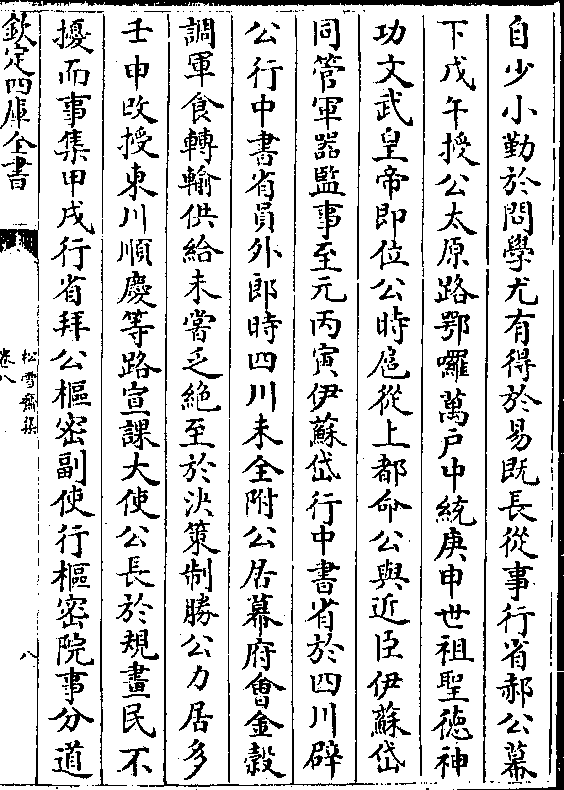 自少小勤於問學尤有得於易既長從事行省郝公幕
下戊午授公太原路鄂囉萬戶中統庚申世祖聖徳神
功文武皇帝即位公時扈從上都命公與近臣伊蘇岱
同管軍器監事至元丙寅伊蘇岱行中書省於四川辟
公行中書省員外郎時四川未全附公居幕府㑹金穀
調軍食轉輸供給未嘗乏絶至於决策制勝公力居多
壬申改授東川順慶等路宣課大使公長於規畫民不
擾而事集甲戌行省拜公樞密副使行樞密院事分道
欽定四庫全書
松雪齋集
卷八
八